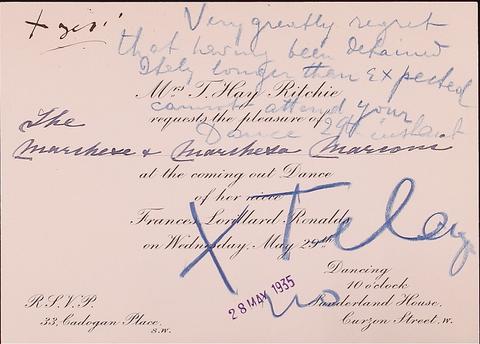 Very greatly regret
that having been detained
Italy longer than expected
cannot attend your
Dance 29th instant
Mrs T. Hay Ritchie
requests the pleasure of
The
Marchese & Marchesa Marconi
at the coming out Dance
of her niece
Frances Lorillard Ronalds
on Wednesday, May 29th
X Teleg
28 MAY 1935
Dancing
10 o'clock
Sunderland House,
Curzon Street, W.
R.S.V.P.
33, Cadogan Place,
S.W.